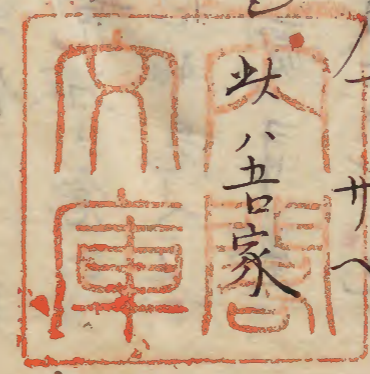 サヘ
此ハ吾家
内閣
文庫